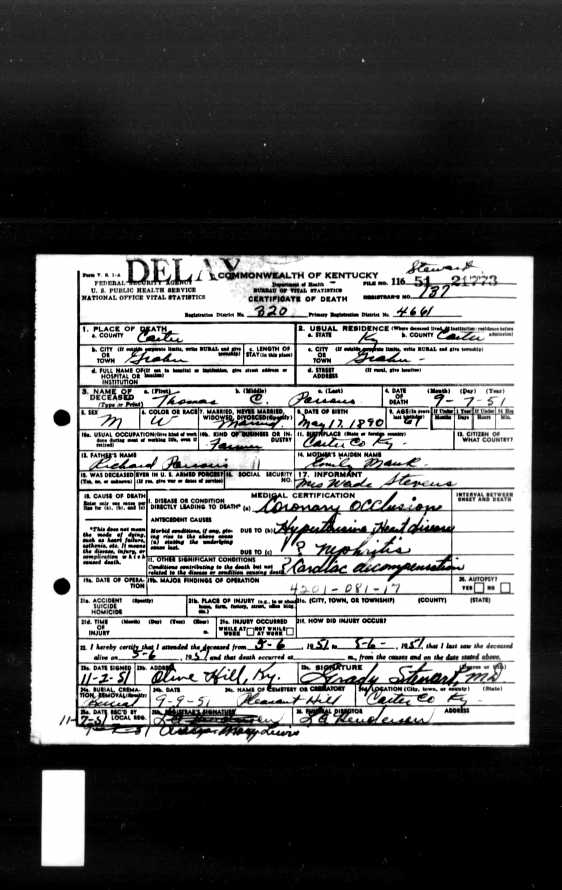 DELAY
Steward
Form V. S. 1-A
COMMONWEALTH OF KENTUCKY
FILE NO. 116 51 21773
FEDERAL SECURITY AGENCY
Department of Health
U. S. PUBLIC HEALTH SERVICE
BUREAU OF VITAL STATISTICS
REGISTRAR'S NO. 137
NATIONAL OFFICE VITAL STATISTICS
CERTIFICATE OF DEATH
Registration District No. 320 Primary Registration District No. 4661
1. PLACE OF DEATH
a. COUNTY Carter
2. USUAL RESIDENCE (Where deceased lived. If institution: residence before admission)
a. STATE Ky b. COUNTY Carter
b. CITY (If outside corporate limits, write RURAL and give township)
OR
TOWN Grahn
c. LENGTH OF STAY (in this place)
c. CITY (If outside corporate limits, write RURAL and give township)
OR
TOWN Grahn
d. FULL NAME OF (If not in hospital or institution, give street address or location)
HOSPITAL OR
INSTITUTION
d. STREET ADDRESS (If rural, give location)
3. NAME OF DECEASED (Type or Print)
a. (First) Thomas
b. (Middle) C.
c. (Last) Parsons
4. DATE OF DEATH (Month) (Day) (Year)
9-7-51
5. SEX M
6. COLOR OR RACE W
7. MARRIED, NEVER MARRIED, WIDOWED, DIVORCED (Specify) Married
8. DATE OF BIRTH May 17, 1890
9. AGE (In years last birthday) 61
If Under 1 Year Months Days
If Under 24 Hrs. Hours Min.
10a. USUAL OCCUPATION (Give kind of work done during most of working life, even if retired)
10b. KIND OF BUSINESS OR INDUSTRY
Farmer
11. BIRTHPLACE (State or foreign country)
Carter Co Ky
12. CITIZEN OF WHAT COUNTRY?
13. FATHER'S NAME
Richard Parsons
14. MOTHER'S MAIDEN NAME
Mauk
15. WAS DECEASED EVER IN U. S. ARMED FORCES? (Yes, no, or unknown) (If yes, give war or dates of service)
16. SOCIAL SECURITY NO.
17. INFORMANT
Mrs Wade Stevens
18. CAUSE OF DEATH
Enter only one cause per line for (a), (b), and (c)
MEDICAL CERTIFICATION
INTERVAL BETWEEN ONSET AND DEATH
I. DISEASE OR CONDITION
DIRECTLY LEADING TO DEATH* (a) Coronary Occlusion
*This does not mean the mode of dying, such as heart failure, asthenia, etc. It means the disease, injury, or complication which caused death.
ANTECEDENT CAUSES
Morbid conditions, if any, giving rise to the above cause (a) stating the underlying cause last.
DUE TO (b) Hypertensive Heart disease
DUE TO (c) ? Nephritis
II. OTHER SIGNIFICANT CONDITIONS
Conditions contributing to the death but not related to the disease or condition causing death.
? Cardiac decompensation
19a. DATE OF OPERATION
19b. MAJOR FINDINGS OF OPERATION
4201-081-17
20. AUTOPSY?
YES NO
21a. ACCIDENT SUICIDE HOMICIDE (Specify)
21b. PLACE OF INJURY (e.g., in or about home, farm, factory, street, office bldg., etc.)
21c. (CITY, TOWN, OR TOWNSHIP) (COUNTY) (STATE)
21d. TIME OF INJURY (Month) (Day) (Year) (Hour) m.
21e. INJURY OCCURRED
WHILE AT WORK NOT WHILE AT WORK
21f. HOW DID INJURY OCCUR?
22. I hereby certify that I attended the deceased from 5-6, 1951, to 5-6-, 1951, that I last saw the deceased
alive on 5-6, 1951 and that death occurred at m., from the causes and on the date stated above.
23a. DATE SIGNED
11-2-51
23b. ADDRESS
Olive Hill, Ky.
23c. SIGNATURE (Degree or title)
Grady Stewart, MD
24a. BURIAL, CREMATION, REMOVAL (Specify)
Burial
24b. DATE
9-9-51
24c. NAME OF CEMETERY OR CREMATORY
Pleasant Hill
24d. LOCATION (City, town, or county) (State)
Carter Co Ky
25a. DATE REC'D BY LOCAL REG.
11-7-51
25b. REGISTRAR'S SIGNATURE
Mary Lewis
26. FUNERAL DIRECTOR ADDRESS
Henderson